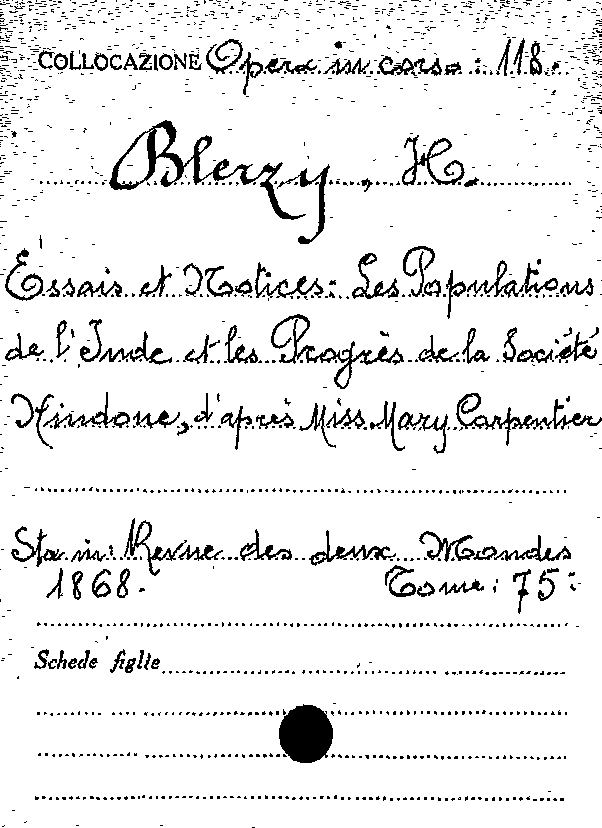 COLLOCAZIONE Opera in corso: 118.
Blerzy, H.
Essais et Notices: Les Populations
de l'Inde et les Progrès de la Société
Hindoue, d'après Miss Mary Carpentier
Sta in: Revue des deux Mondes
1868. Tome: 75:
Schede figlie